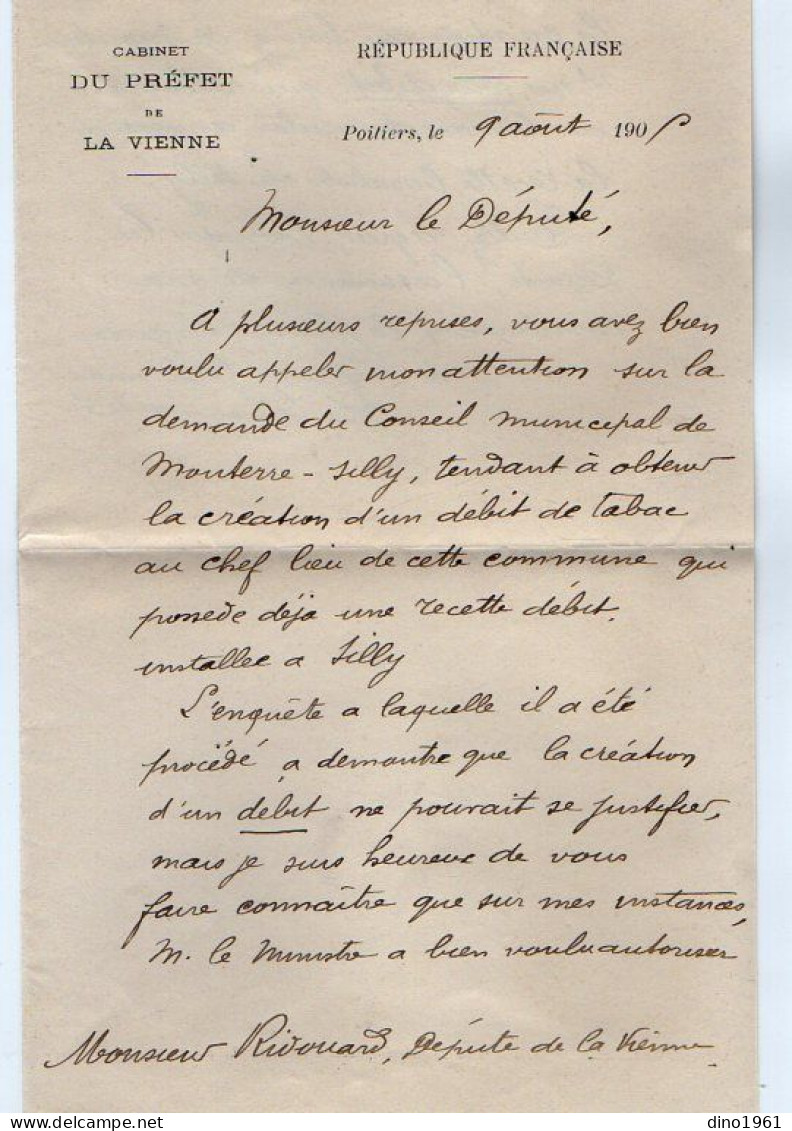 CABINET
DU PRÉFET
DE
LA VIENNE
RÉPUBLIQUE FRANÇAISE
Poitiers, le 9 août 1905
Monsieur le Député,
A plusieurs reprises, vous avez bien
voulu appeler mon attention sur la
demande du Conseil municipal de
Monterre-Silly, tendant à obtenir
la création d'un débit de tabac
au chef lieu de cette commune qui
possede déja une recette débit
installée a Silly
L'enquête a laquelle il a été
procédé a demontre que la création
d'un debit ne pourait se justifier,
mais je suis heureux de vous
faire connaître que sur mes instances,
M. le Ministre a bien voulu autoriser
Monsieur Ridouard, Députe de la Vienne
dino1961